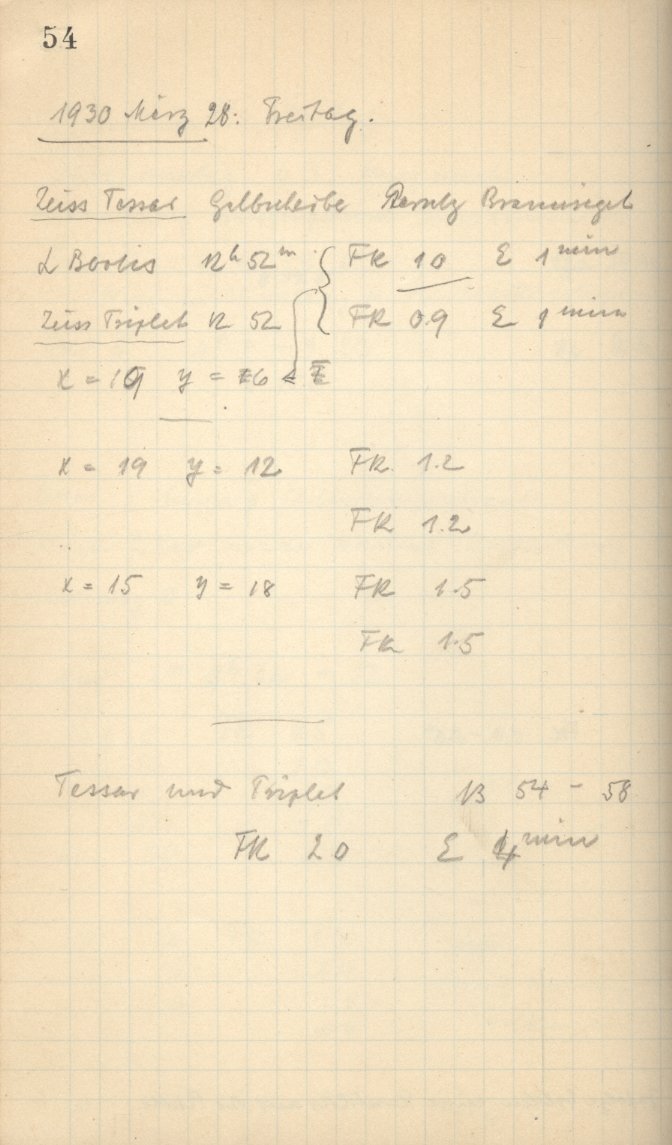 54
1930 März 28. Freitag.
Zeiss Tessar Gelbscheibe Perutz Braunsiegel
α Bootis 12h 52m FK 10 E 1 min
Zeiss Triplet 12 52 FK 0.9 E 1 min
x = 19 y = 6
x = 19 y = 12 FK 1.2
FK 1.2
x = 15 y = 18 FK 1.5
FK 1.5
Tessar und Triplet 13 54 - 58
FK 20 E 4 min